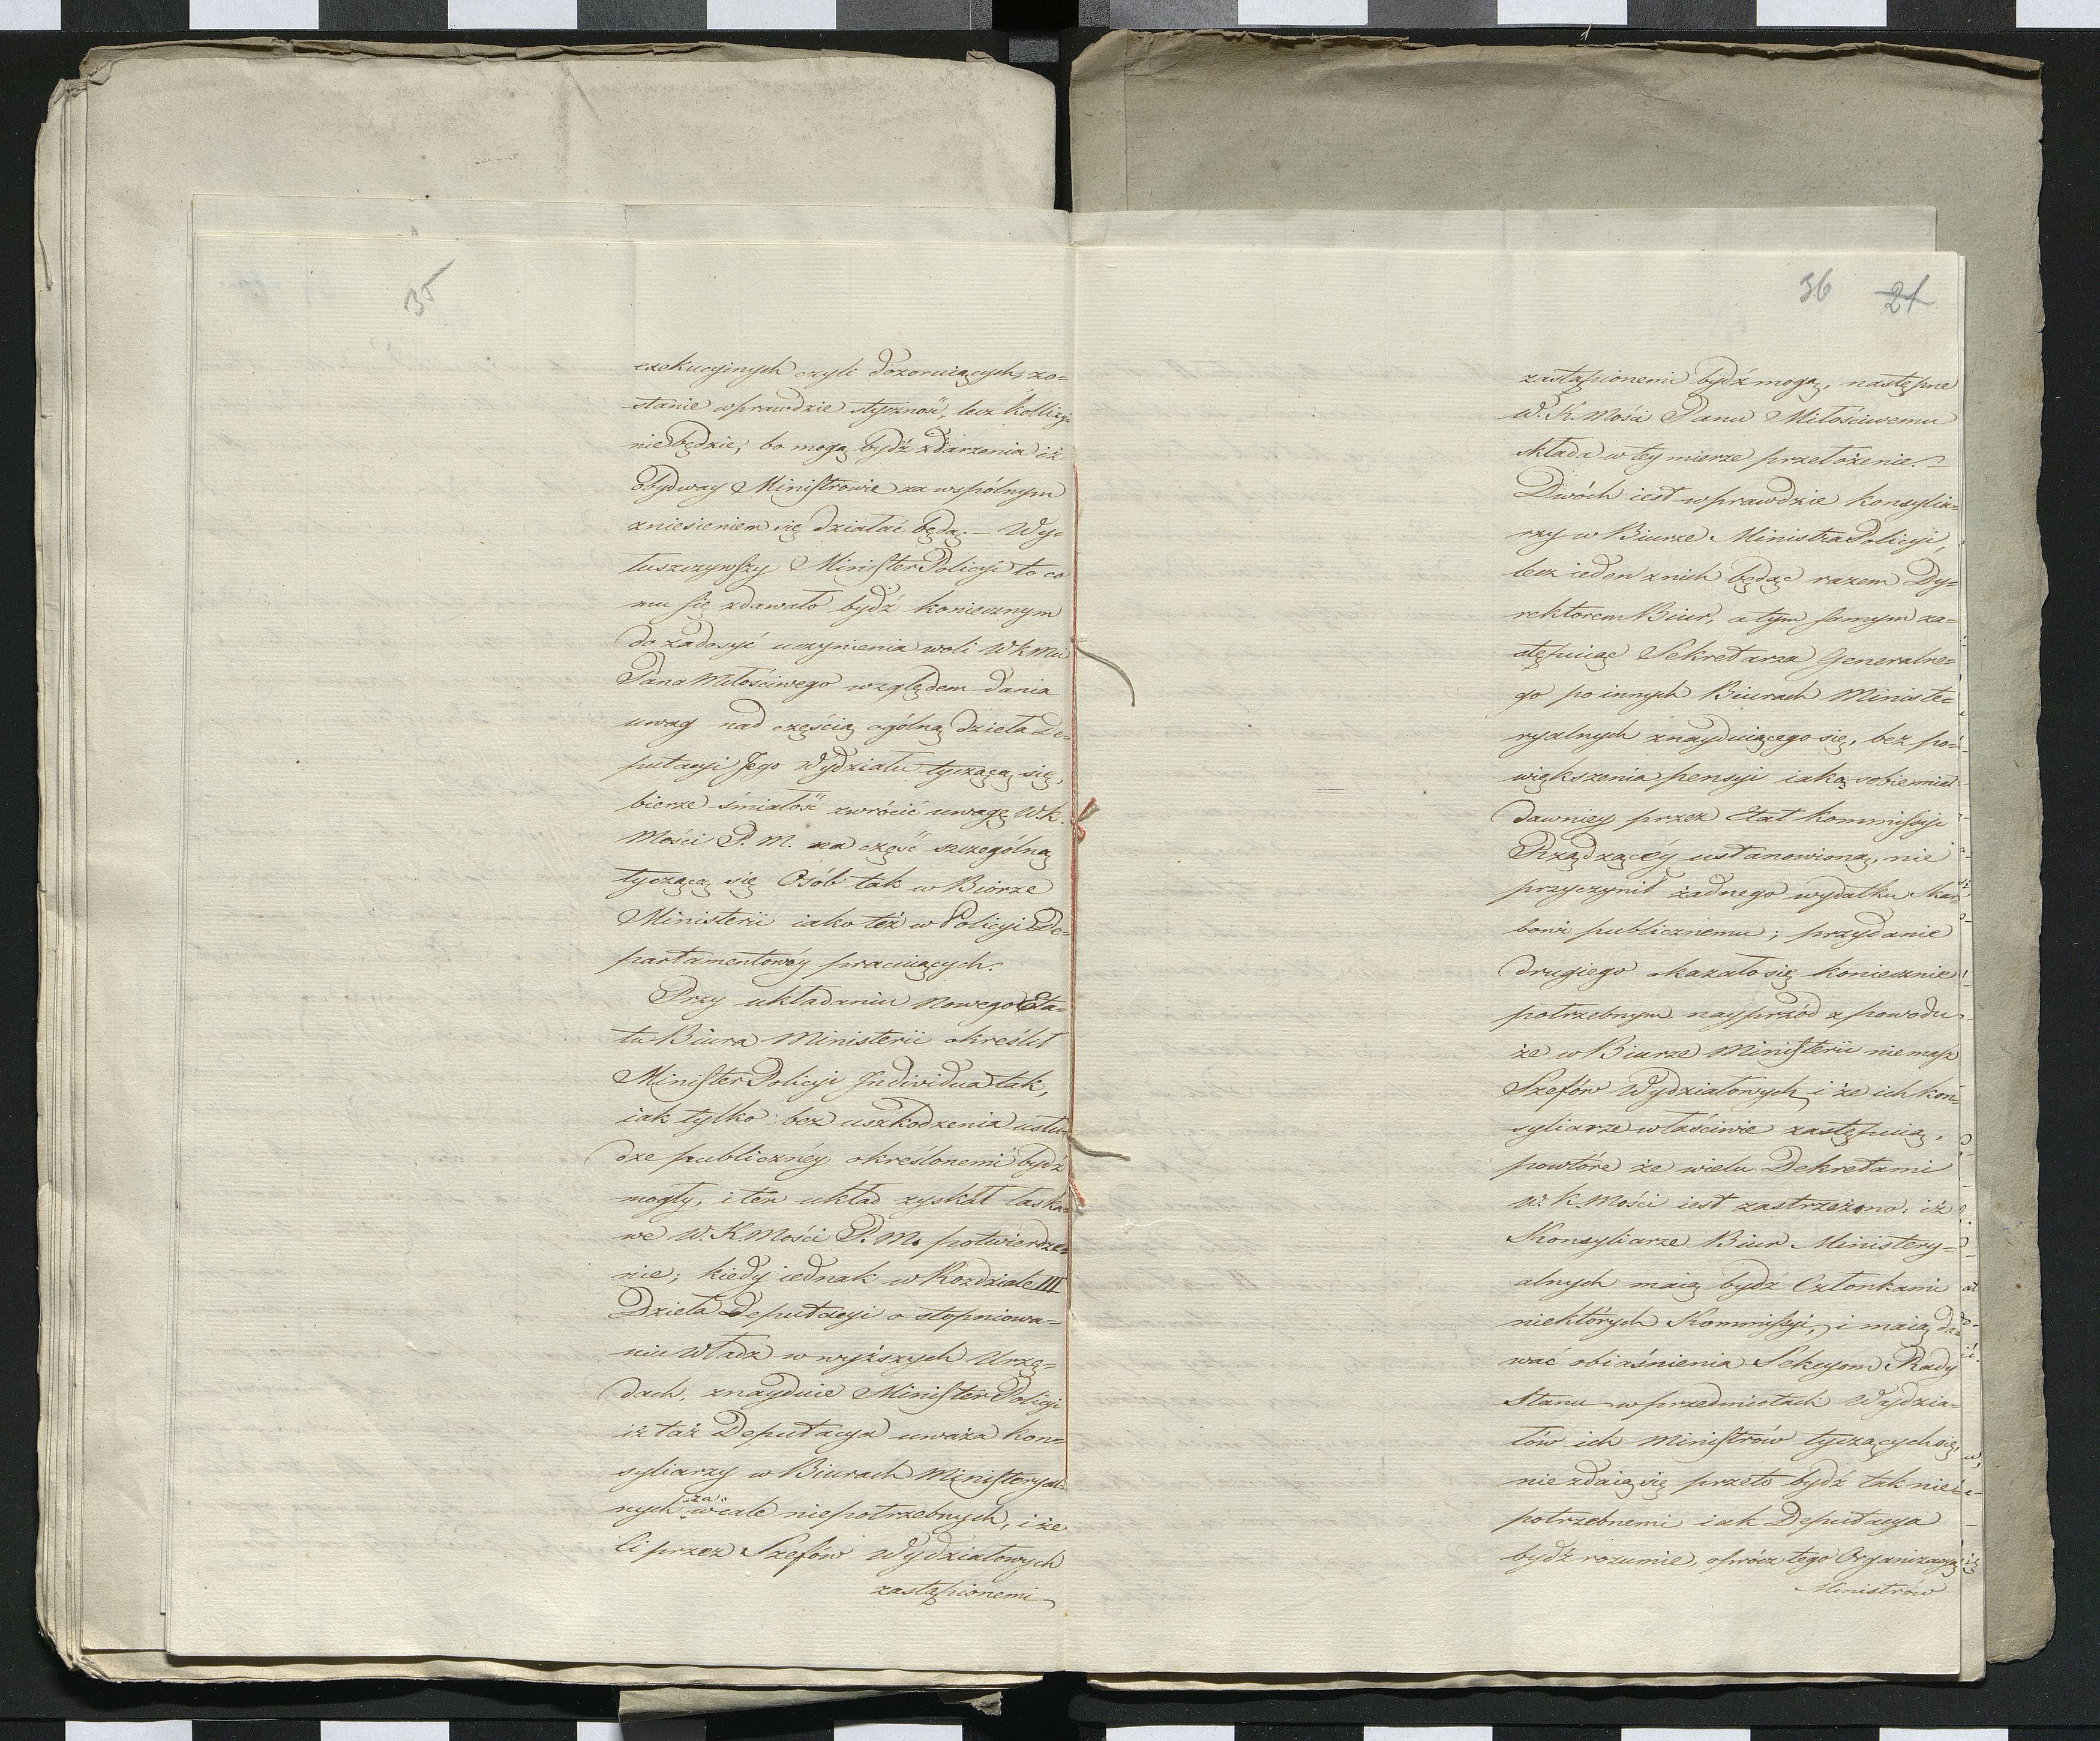 35
exekucyinych czyli dozoruiących, zo=
stanie wprawdzie styczność, lecz Kollizyi
nie będzie, bo mogą bydź zdarzenia iż
obydway Ministrowie za wspólnym
zniesieniem się działać będą. – Wy=
tuszczywszy Minister Policyi to co
mu się zdawało bydź koniecznym
do zadosyć uczynienia woli W K Mci
Pana Miłościwego względem dania
uwag nad częścią ogólną dzieła De=
putacyi Jego Wydziału tyczącą się,
bierze śmiałość zwrócić uwagę W. K.
Mości P. M. na część szczególną
tyczącą się Osób tak w Biórze
Ministerii iako też w Policyi De=
partamentowéy pracuiących.
Przy układaniu nowego Eta=
tu Biura Ministerii określił
Minister Policyi Individua tak,
iak tylko bez uszkodzenia usłu=
dze publicznéy określonemi bydź
mogły, i ten układ zyskał łaska=
we W. K. Mości P. M. potwierdze=
nie; kiedy iednak w Rozdziale III
Dzieła Deputacyi o stopniowa=
niu Władz w wyższych Urzę=
dach, znayduie Minister Policyi
iż taż Deputacya uważa Kon=
syliarzy w Biurach Ministeryal=
nych "za" wcale niepotrzebnych, i że
li przez Szefów Wydziałowych
zastąpionemi
36 21
zastąpionemi bydź mogą, następne
W. K. Mości Panu Miłościwemu
składa w tey mierze przełożenie. –
Dwóch iest wprawdzie Konsylia=
rzy w Biurze Ministra Policyi,
lecz ieden z nich będąc razem Dy=
rektorem Biur, a tym samym za=
stępuiąc Sekretarza Generalne=
go po innych Biurach Ministe=
ryalnych znayduiącego się, bez po=
większenia pensyi iaką sobie miał
dawniey przez Etat Kommissyi
Rządzącéy ustanowioną, nie
przyczynił żadnego wydatku Skar=
bowi publicznemu; przydanie
drugiego okazało się koniecznie
potrzebnym nayprzód z powodu
że w Biurze Ministerii nie masz
Szefów Wydziałowych, i że ich Kon=
syliarze właściwie zastępuią,
powtóre że wielu Dekretami
W. K. Mości iest zastrzeżono, iż
Konsyliarze Biur Ministery=
alnych maią bydź Członkami
niektórych Kommissyi, i maią da=
wać obiaśnienia Sekcyom Rady
Stanu w przedmiotach Wydzia=
łów ich Ministrów tyczących się,
nie zdaią się przeto bydź tak nie=
potrzebnemi iak Deputacya
bydź rozumie, oprócz tego Organizacyą
Ministrów